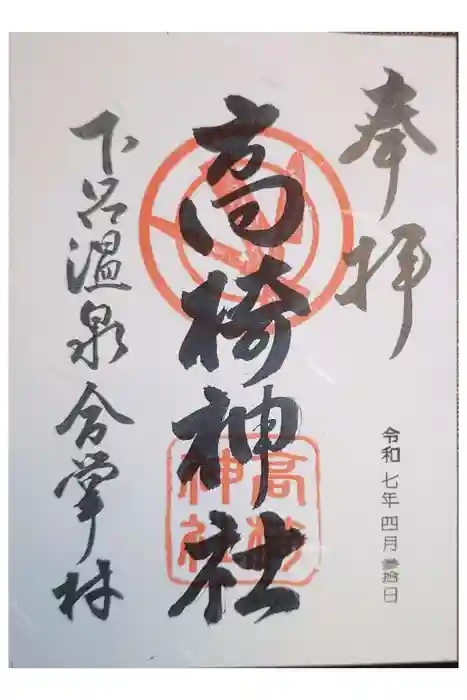 奉拝
令和七年四月参拾日
高椅神社
高椅神社
下呂温泉合掌村